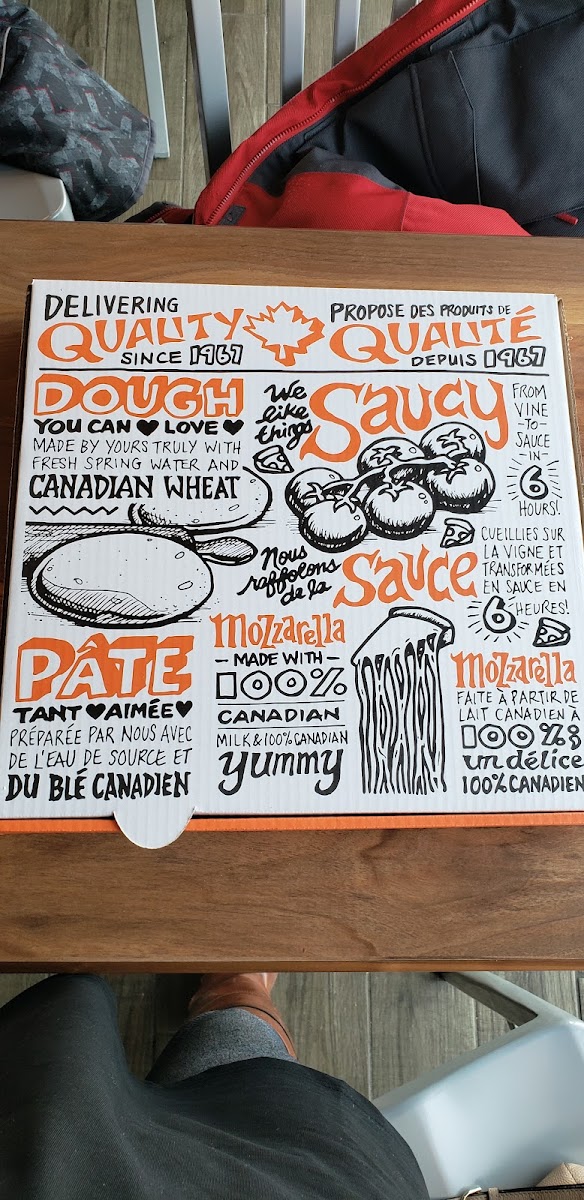 DELIVERING
QUALITY
SINCE 1967
PROPOSE DES PRODUITS DE
QUALITÉ
DEPUIS 1967
DOUGH
YOU CAN ♥ LOVE ♥
MADE BY YOURS TRULY WITH
FRESH SPRING WATER AND
CANADIAN WHEAT
We
like
things
SAUCY
FROM
VINE
-TO-
SAUCE
-IN-
6
HOURS!
Nous
raffolons
de la
SAUCE
CUEILLIES SUR
LA VIGNE ET
TRANSFORMÉES
EN SAUCE EN
6 HEURES!
PÂTE
TANT ♥ AIMÉE ♥
PRÉPARÉE PAR NOUS AVEC
DE L'EAU DE SOURCE ET
DU BLÉ CANADIEN
Mozzarella
- MADE WITH -
100%
CANADIAN
MILK & 100% CANADIAN
yummy
Mozzarella
FAITE À PARTIR DE
LAIT CANADIEN À
100%;
un délice
100% CANADIEN